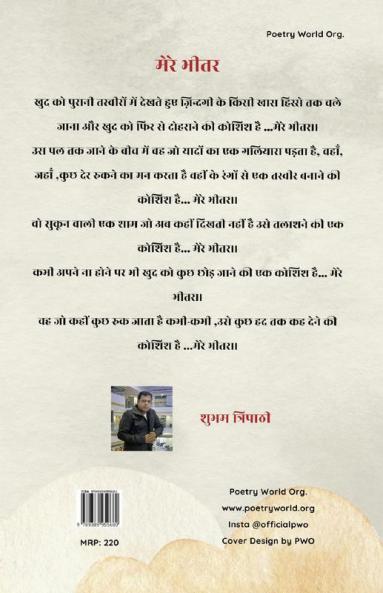 Poetry World Org.
मेरे भीतर
खुद को पुरानी तस्वीरों में देखते हुए ज़िन्दगी के किसी खास हिस्से तक चले
जाना और खुद को फिर से दोहराने की कोशिश है ...मेरे भीतर।
उस पल तक जाने के बीच में वह जो यादों का एक गलियारा पड़ता है, वहाँ,
जहाँ ,कुछ देर रुकने का मन करता है वहीं के रंगों से एक तस्वीर बनाने की
कोशिश है... मेरे भीतर।
वो सुकून वाली एक शाम जो अब कहीं दिखती नहीं है उसे तलाशने की एक
कोशिश है... मेरे भीतर।
कभी अपने ना होने पर भी खुद को कुछ छोड़ जाने की एक कोशिश है... मेरे
भीतर।
वह जो कहीं कुछ रुक जाता है कभी-कभी ,उसे कुछ हद तक कह देने की
कोशिश है ...मेरे भीतर।
शुभम त्रिपाठी
MRP: 220
Poetry World Org.
www.poetryworld.org
Insta @officialpwo
Cover Design by PWO